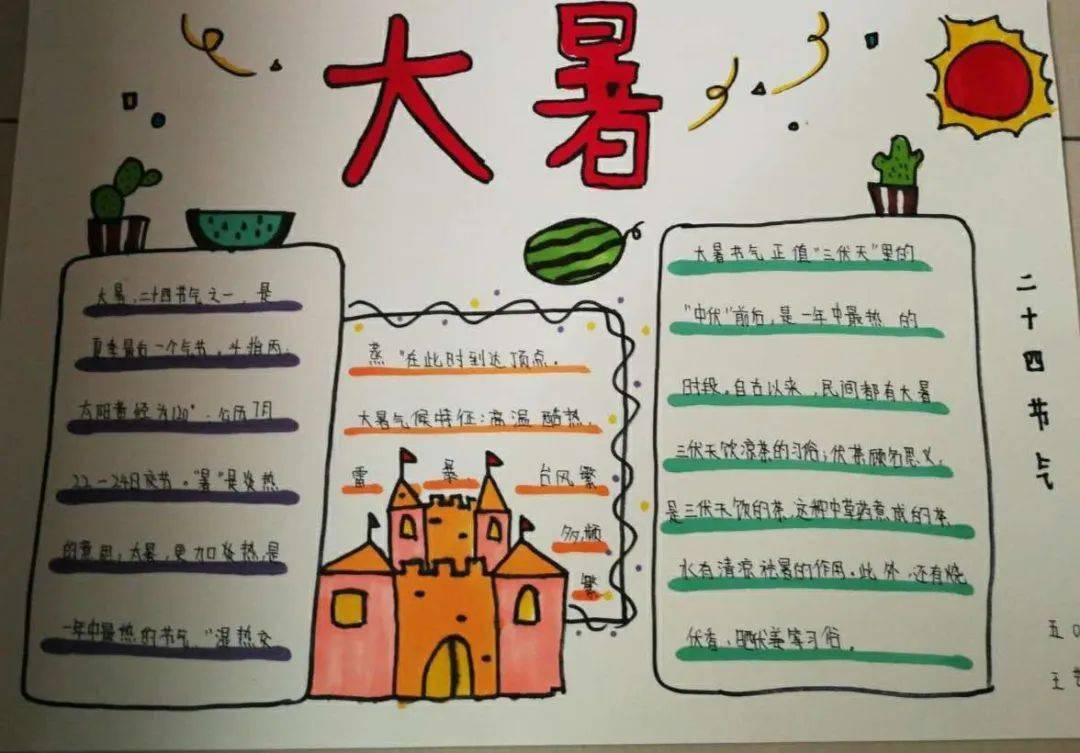 大暑
大暑,二十四节气之一,是
夏季最后一个气节。斗指丙;
太阳黄经为120°;公历7月
22-24日交节。"暑"是炎热
的意思,大暑,更加炎热,是
一年中最热的节气,"湿热交
蒸"在此时到达顶点。
大暑气候特征:高温酷热,
雷 暴 台风繁
多频
繁
大暑节气正值"三伏天"里的
"中伏"前后,是一年中最热 的
时段,自古以来,民间都有大暑
三伏天饮凉茶的习俗;伏茶顾名思义,
是三伏天饮的茶,这种中草药煮成的茶
水有清凉祛暑的作用。此外,还有烧
伏香,晒伏姜等习俗。
二十四节气
五
王